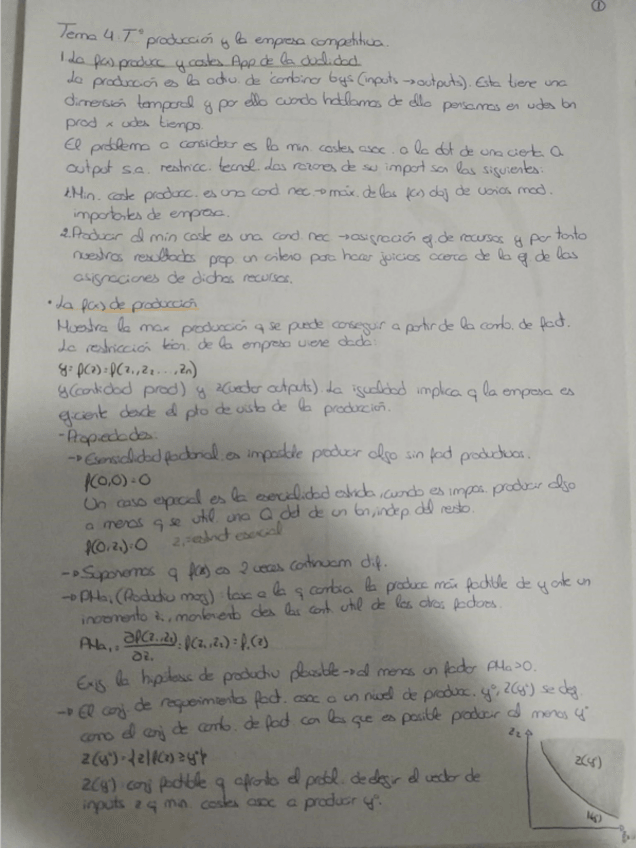 ①
Tema 4. Tª producción y la empresa competitiva.
1. La f(x) produc y costes App de la dualidad
La producción es la activ. de combinar bys (inputs → outputs). Esta tiene una
dimensión temporal y por ello cuando hablamos de ello pensamos en udes bn
prod x udes tiempo.
El problema a considerar es la min. costes asoc. a la obt de una cierta Q
output s.a. restricc. tecnol. Las razones de su import son las siguientes:
1. Min. coste producc. es una cond nec → máx. de las f(x) obj de varios mod.
importantes de empresa.
2. Producir al min coste es una cond. nec → asignación ef. de recursos y por tanto
nuestros resultados prop un criterio para hacer juicios acerca de la ef de las
asignaciones de dichos recursos.
• La f(x) de producción
Muestra la max producción q se puede conseguir a partir de la comb. de fact.
La restricción técn. de la empresa viene dada:
y = f(z) = f(z₁, z₂ ..., zn)
y (cantidad prod) y z (vector outputs). La igualdad implica q la empresa es
eficiente desde el pto de vista de la producción.
- Propiedades:
→ Esencialidad factorial. es imposible producir algo sin fact productivos.
f(0,0) = 0
Un caso especial es la esencialidad estricta, cuando es impos. producir algo
a menos q se util. una Q del de un bn, indep del resto.
f(0, z₂) = 0 z₁ = estrict esencial
→ Suponemos q f(x) es 2 veces continuam dif.
→ PMa₁ (Productiv marg): tasa a la q cambia la produc máx factible de y ante un
incremento z₁, manteniendo ctes las cant. util de los otros factores.
PMa₁ = ∂f(z₁, z₂) / ∂z₁ = f₁(z₁, z₂) = f₁(z)
la hipótesis de productiv plausible → al menos un factor PMa > 0.
→ El conj. de requerimientos fact. asoc a un nivel de produc. yº, Z(yº) se def
como el conj de comb. de fact con las que es posible producir al menos yº
Z(yº) = {z | f(z) ≥ yº}
Z(yº): conj factible q afronta el probl. de elegir el vector de
inputs z q min. costes asoc a producir yº.
z₂
Z(yº)
I(yº)